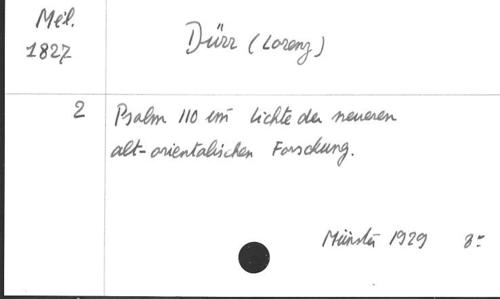 Mél.
1827
Dürr (Lorenz)
2
Psalm 110 im Lichte der neueren
alt-orientalischen Forschung.
Münster 1929 8°